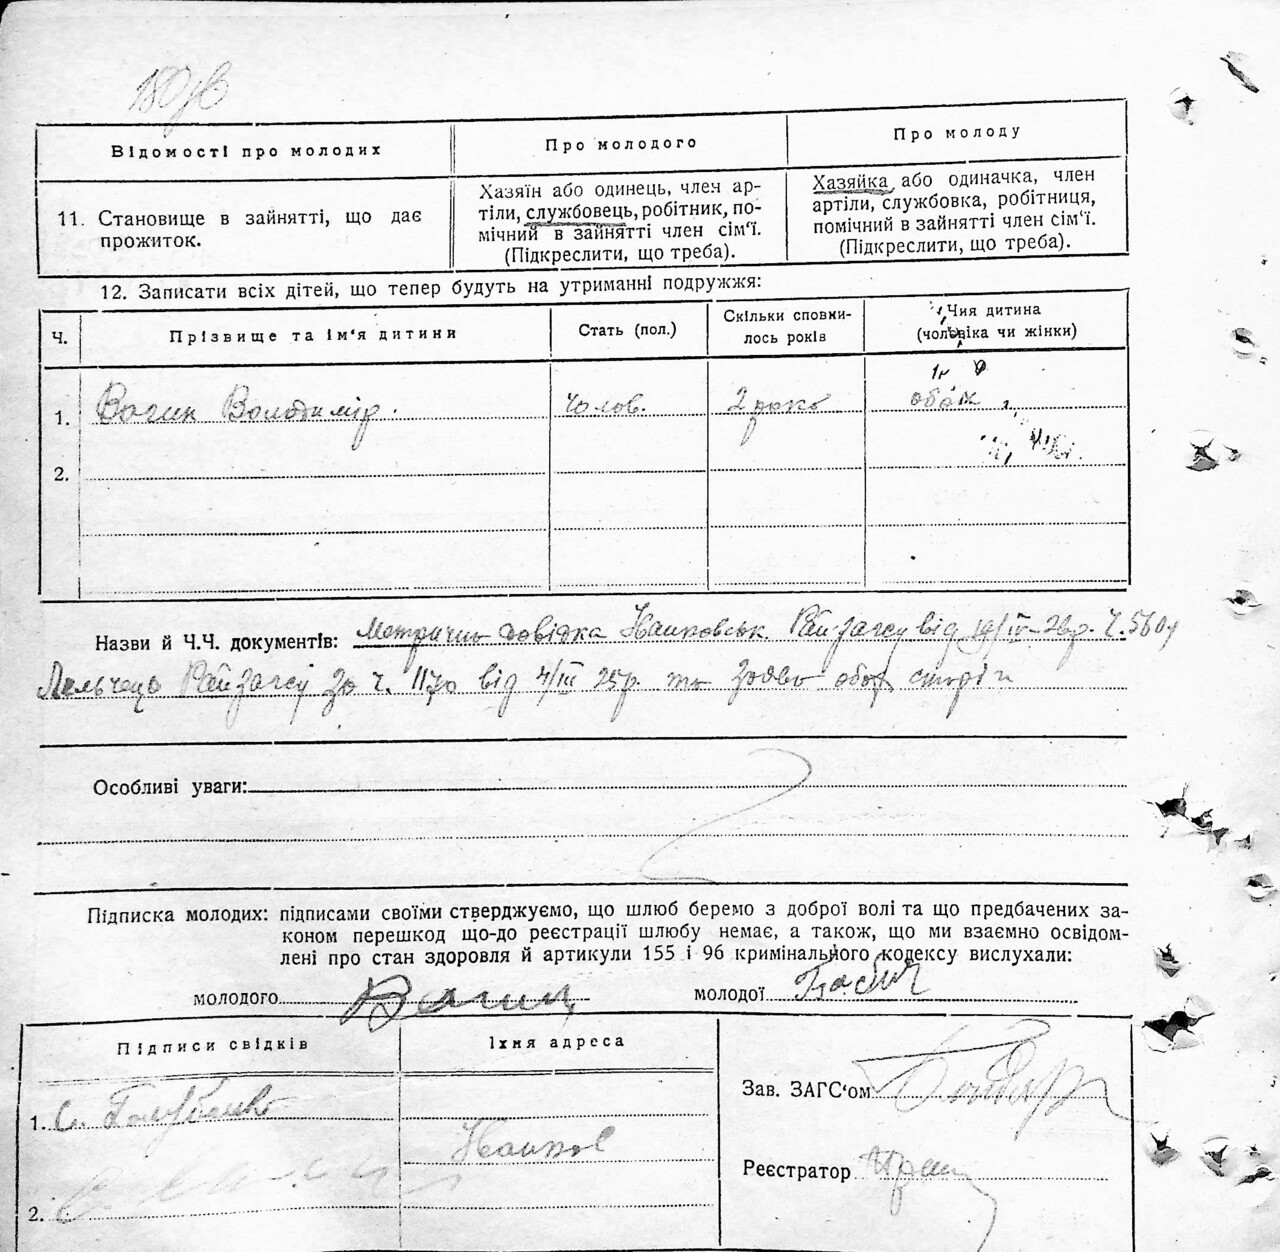 Відомості про молодих
Про молодого
Про молоду
11. Становище в зайнятті, що дає
прожиток.
Хазяїн або одинець, член ар-
тіли, службовець, робітник, по-
мічний в зайнятті член сім'ї.
(Підкреслити, що треба).
Хазяйка або одиначка, член
артіли, службовка, робітниця,
помічний в зайнятті член сім'ї.
(Підкреслити, що треба).
12. Записати всіх дітей, що тепер будуть на утриманні подружжя:
Ч.
Прізвище та ім'я дитини
Стать (пол.)
Скільки сповни-
лось років
Чия дитина
(чоловіка чи жінки)
1. Володимір. чолов. 2
2.
Назви й Ч.Ч. документів: довідка Рай-загсу від
Райзагсу за ч. 1170 від 4/III 25р. та обох сторін
Особливі уваги:
Підписка молодих: підписами своїми стверджуємо, що шлюб беремо з доброї волі та що предбачених за-
коном перешкод що-до реєстрації шлюбу немає, а також, що ми взаємно освідом-
лені про стан здоровля й артикули 155 і 96 кримінального кодексу вислухали:
молодого
молодої
Підписи свідків
Їхня адреса
1.
2.
Зав. ЗАГС'ом
Реєстратор